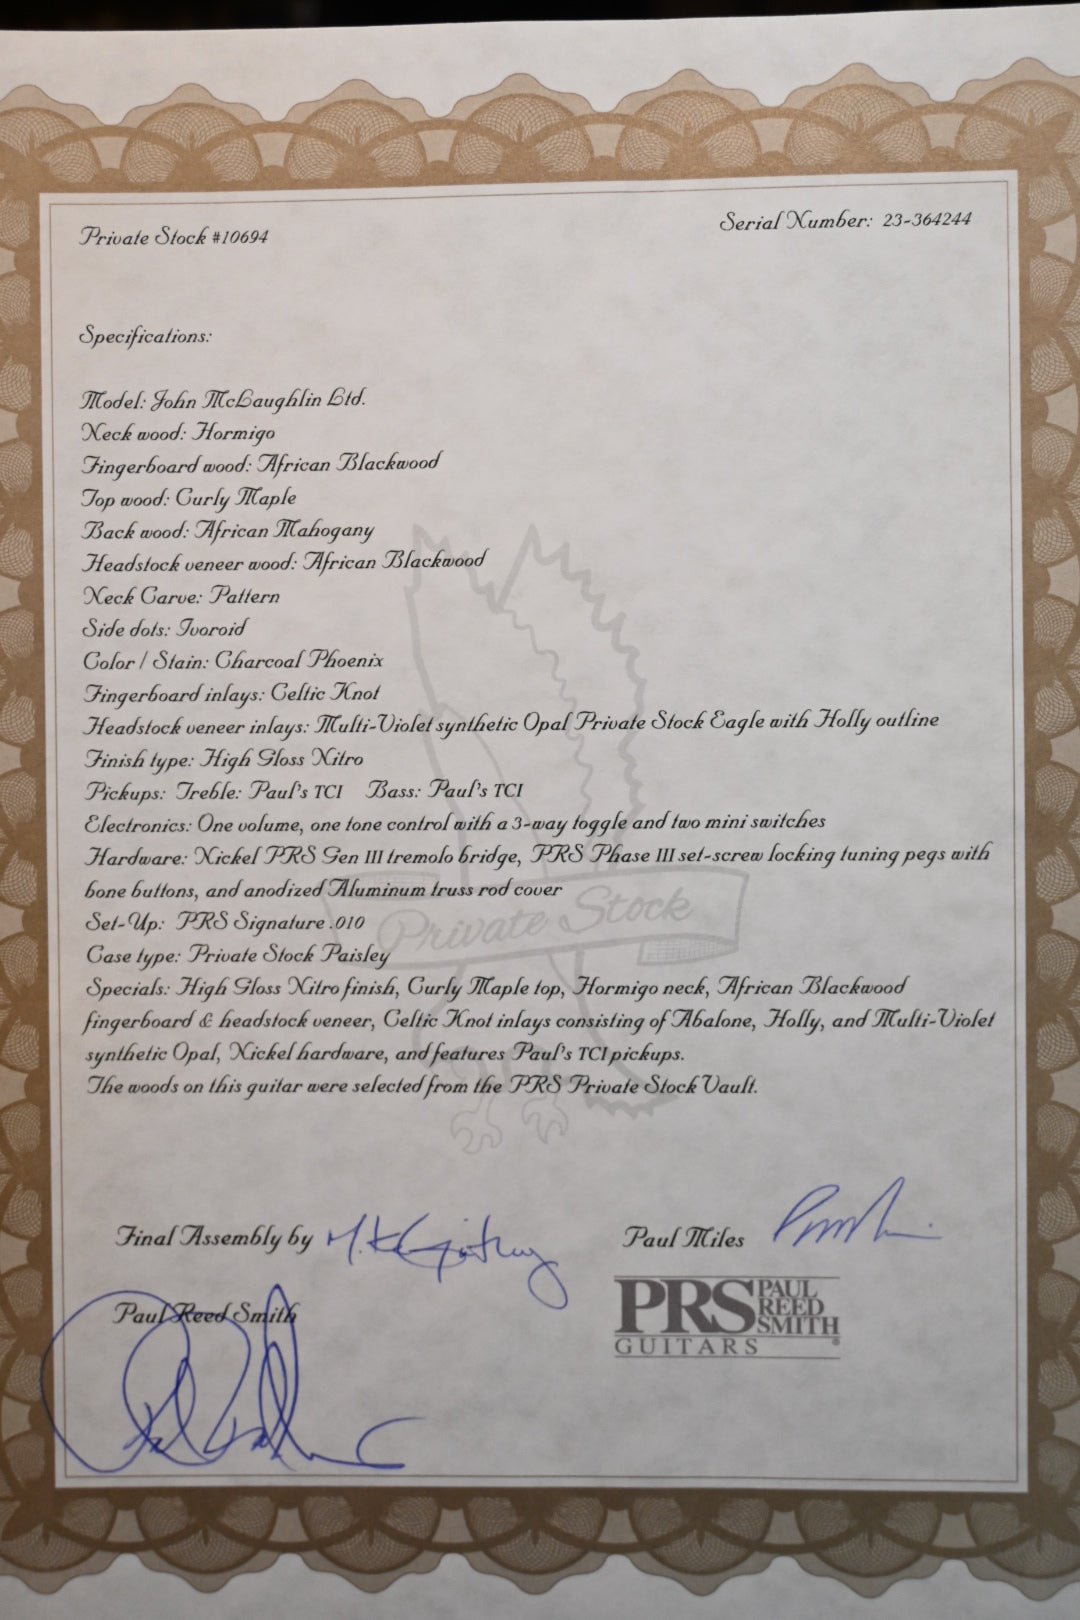 Private Stock #10694
Serial Number: 23-364244
Specifications:
Model: John McLaughlin Ltd.
Neck wood: Hormigo
Fingerboard wood: African Blackwood
Top wood: Curly Maple
Back wood: African Mahogany
Headstock veneer wood: African Blackwood
Neck Carve: Pattern
Side dots: Ivoroid
Color / Stain: Charcoal Phoenix
Fingerboard inlays: Celtic Knot
Headstock veneer inlays: Multi-Violet synthetic Opal Private Stock Eagle with Holly outline
Finish type: High Gloss Nitro
Pickups: Treble: Paul's TCI Bass: Paul's TCI
Electronics: One volume, one tone control with a 3-way toggle and two mini switches
Hardware: Nickel PRS Gen III tremolo bridge, PRS Phase III set-screw locking tuning pegs with
bone buttons, and anodized Aluminum truss rod cover
Set-Up: PRS Signature .010
Private Stock
Case type: Private Stock Paisley
Specials: High Gloss Nitro finish, Curly Maple top, Hormigo neck, African Blackwood
fingerboard & headstock veneer, Celtic Knot inlays consisting of Abalone, Holly, and Multi-Violet
synthetic Opal, Nickel hardware, and features Paul's TCI pickups.
The woods on this guitar were selected from the PRS Private Stock Vault.
Final Assembly by
Paul Miles
Paul Reed Smith
PRS PAUL REED SMITH
GUITARS